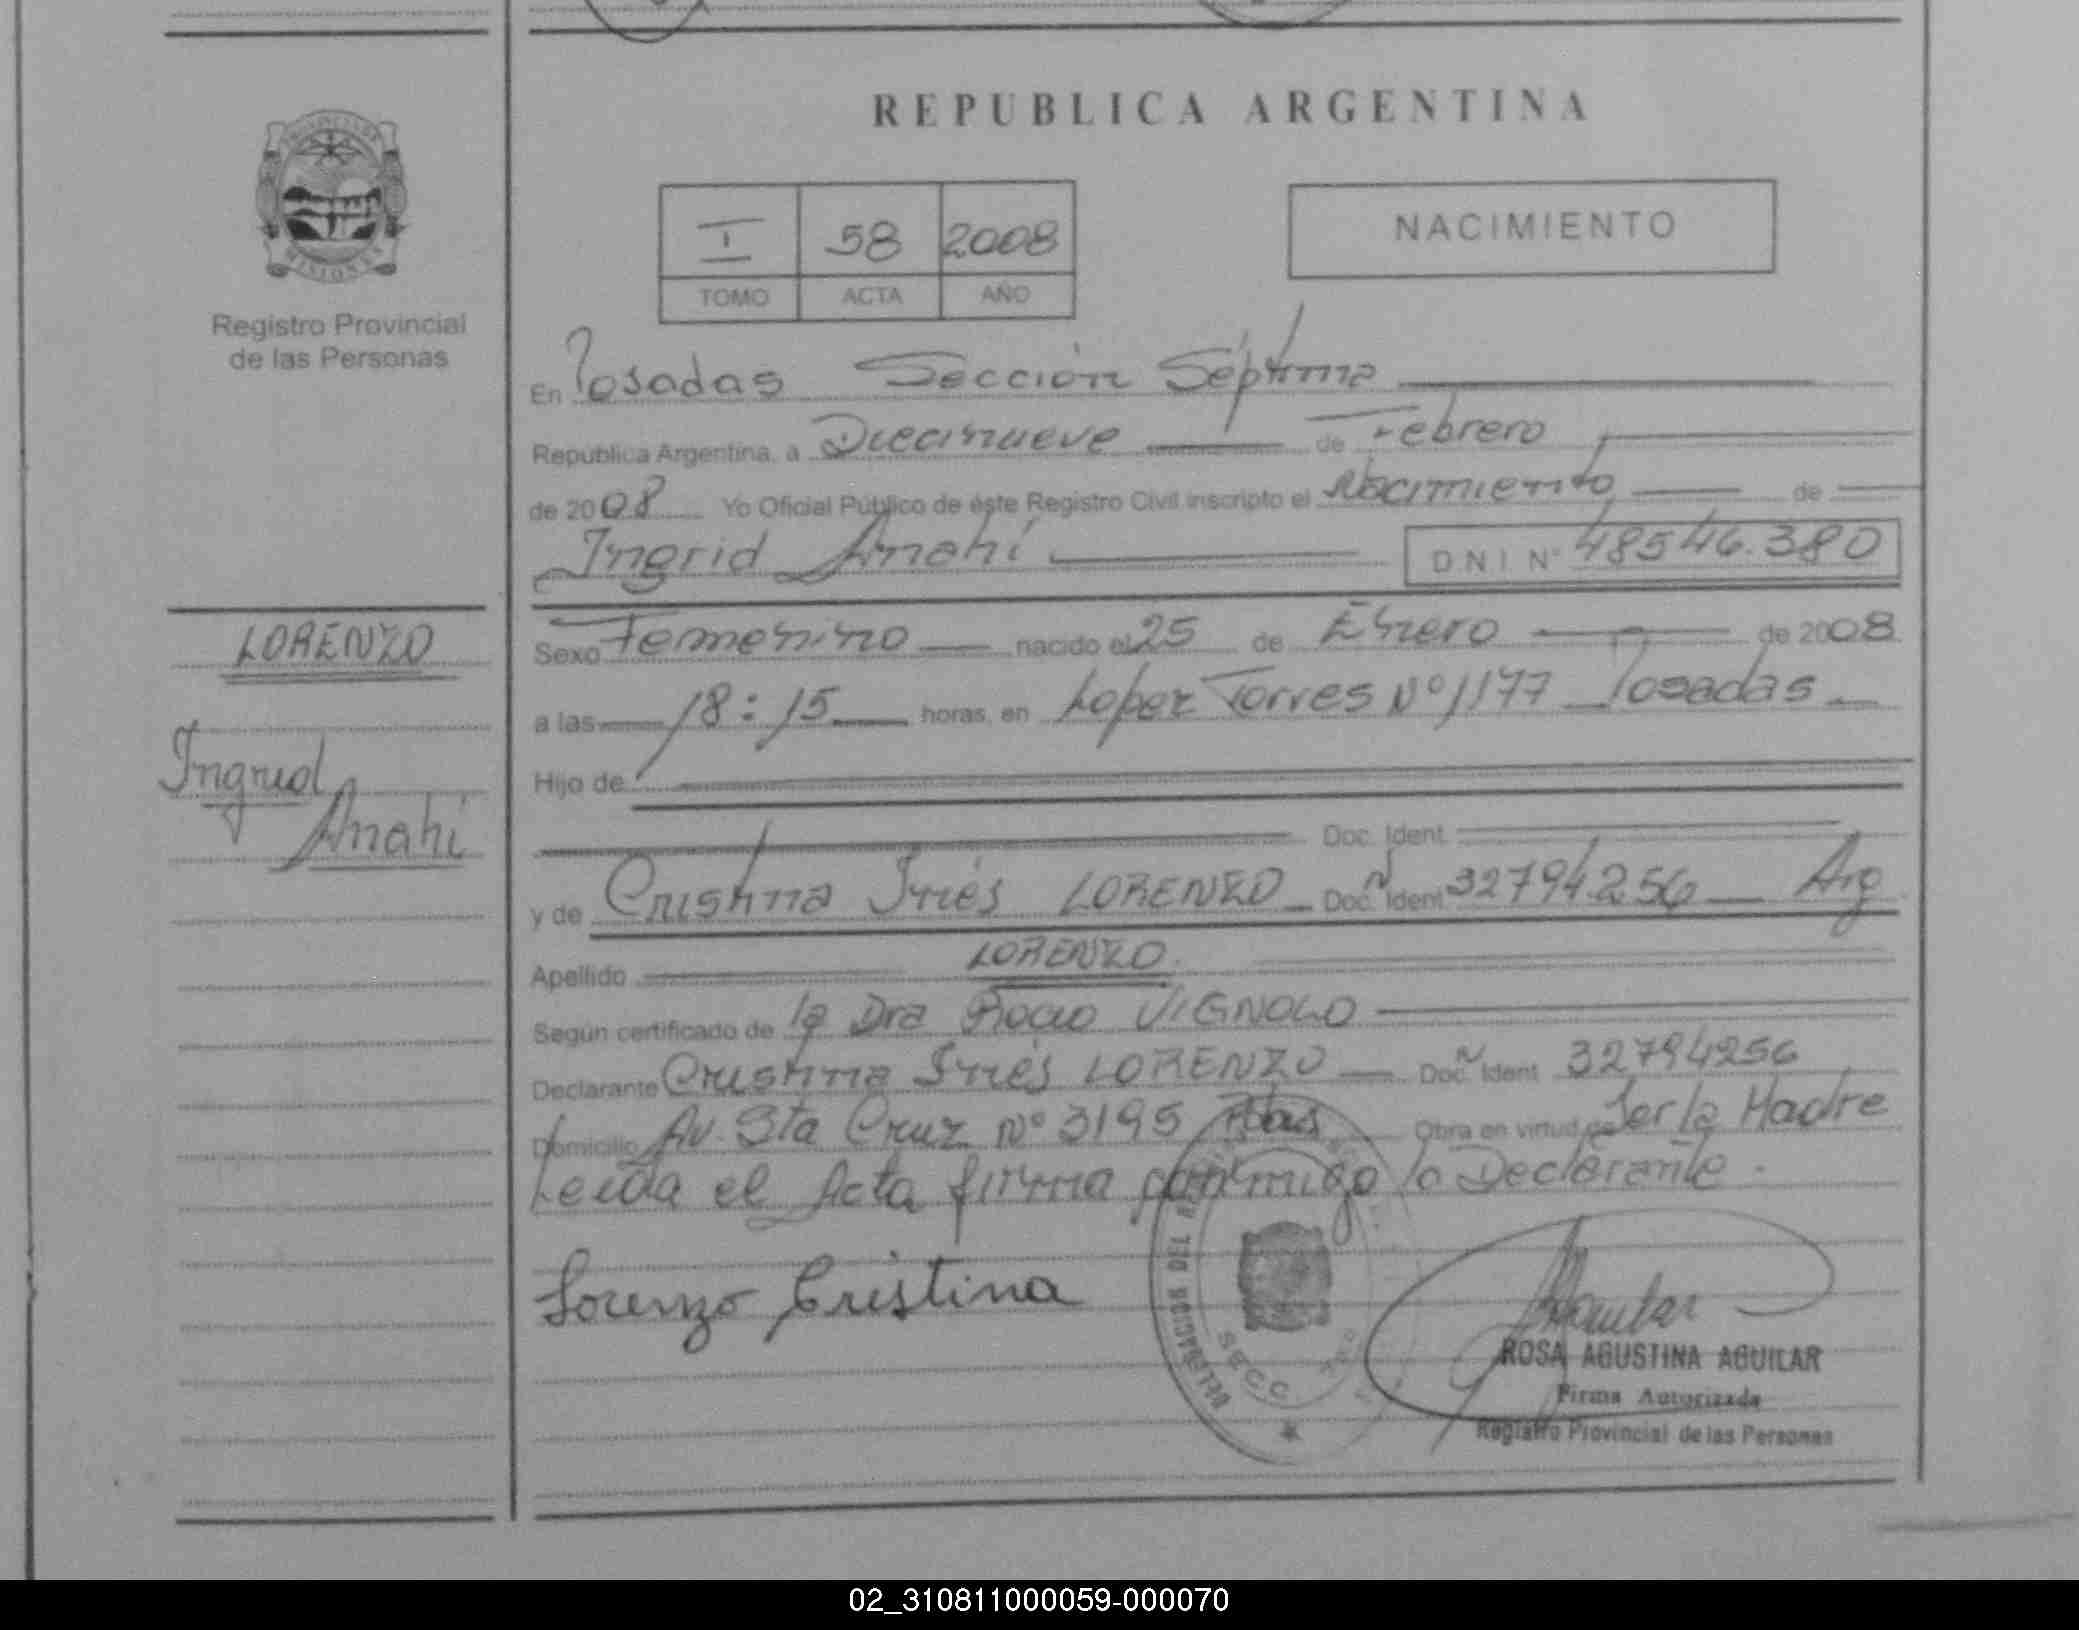 REPUBLICA ARGENTINA
PROVINCIA DE
MISIONES
Registro Provincial
de las Personas
I 58 2008
TOMO ACTA AÑO
NACIMIENTO
En Posadas Sección Séptima
República Argentina, a Diecinueve de Febrero
de 2008 Yo Oficial Público de éste Registro Civil inscripto el Nacimiento de
Ingrid Anahí D N I Nº 48546.380
LORENZO
Ingrid
Anahí
Sexo Femenino nacido el 25 de Enero de 2008
a las 18:15 horas, en Lopez Torres Nº 1177 Posadas
Hijo de
Doc. Ident
y de Cristina Inés LORENZO Doc. Ident 32794256 Arg
Apellido LORENZO.
Según certificado de la Dra Rocio VIGNOLO
Declarante Cristina Inés LORENZO Doc. Ident 32794256
Domicilio Av. Sta Cruz Nº 3195 Pdas Obra en virtud de Ser la Madre
Leida el Acta firma conmigo la Declarante.
Lorenzo Cristina
DELEGACION DEL
SECC
Aguilar
ROSA AGUSTINA AGUILAR
Firma Autorizada
Registro Provincial de las Personas
02_310811000059-000070